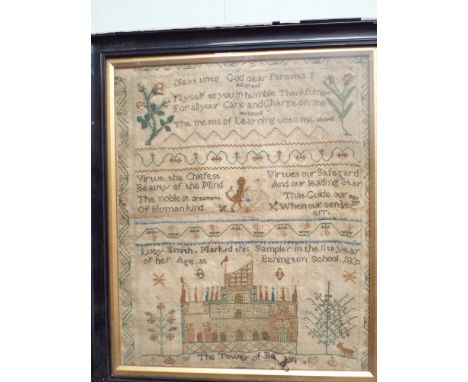 Next unto God dear Parents I
address
Myself to you in humble Thankfulness
For all your Care and Charge on me
bestowed
The means of Learning unto me
Virtue the Chiefest
Beauty of the Mind
The noblest ornament
Of Humankind
Virtues our Safegard
And our leading Star
That Guide our
When our senses
err.
Lucy Smith. Marked this Sampler in the 11th year
of her Age at Benington School. 183
The Tower of